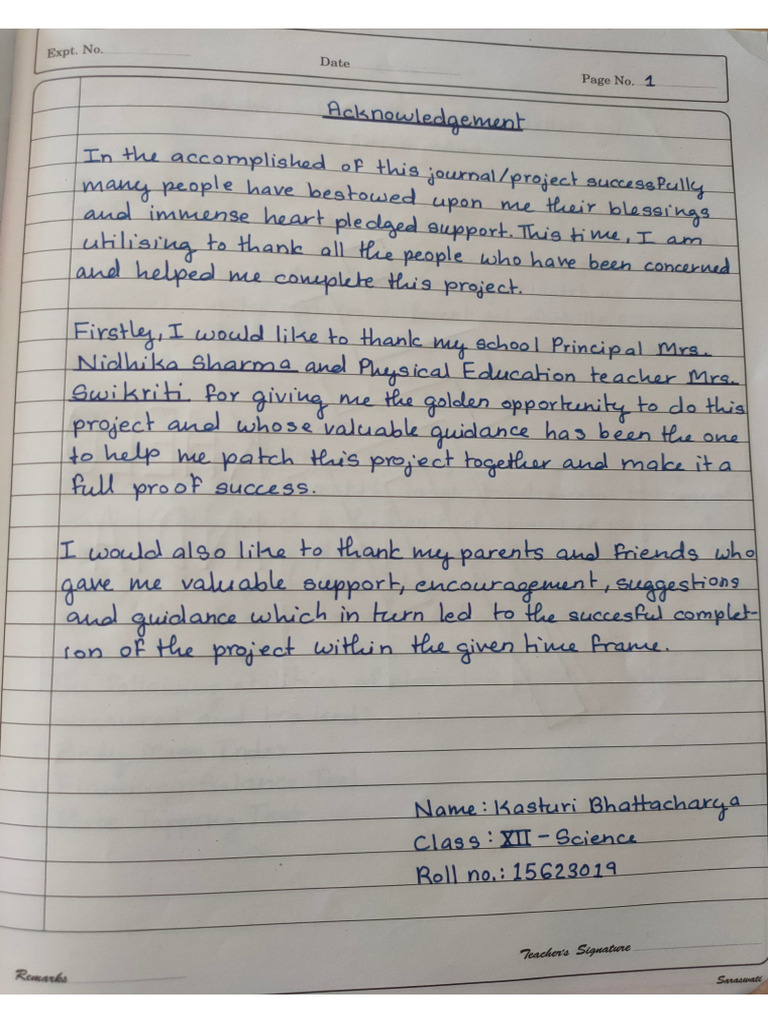 Expt. No.
Date
Page No. 1
Acknowledgement
In the accomplished of this journal/project successfully
many people have bestowed upon me their blessings
and immense heart pledged support. This time, I am
utilising to thank all the people who have been concerned
and helped me complete this project.
Firstly, I would like to thank my school Principal Mrs.
Nidhika Sharma and Physical Education teacher Mrs.
Swikriti for giving me the golden opportunity to do this
project and whose valuable guidance has been the one
to help me patch this project together and make it a
full proof success.
I would also like to thank my parents and friends who
gave me valuable support, encouragement, suggestions
and guidance which in turn led to the succesful complet-
ion of the project within the given time frame.
Name: Kasturi Bhattacharya
Class: XII - Science
Roll no.: 15623019
Teacher's Signature
Remarks
Saraswati